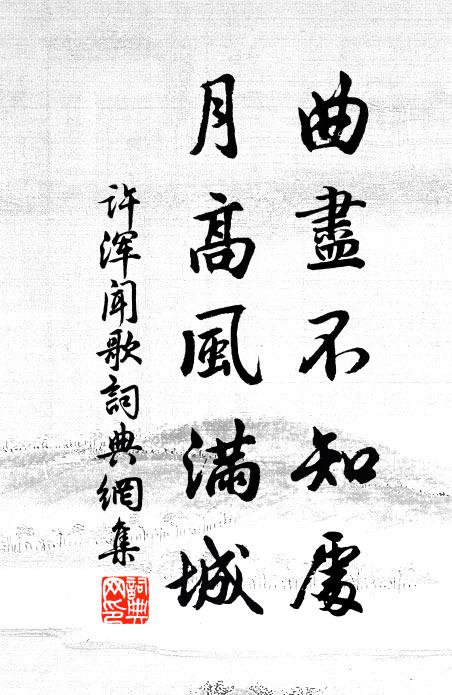 曲盡不知處
月高風滿城
许浑闻歌詞典網集
詞典网印